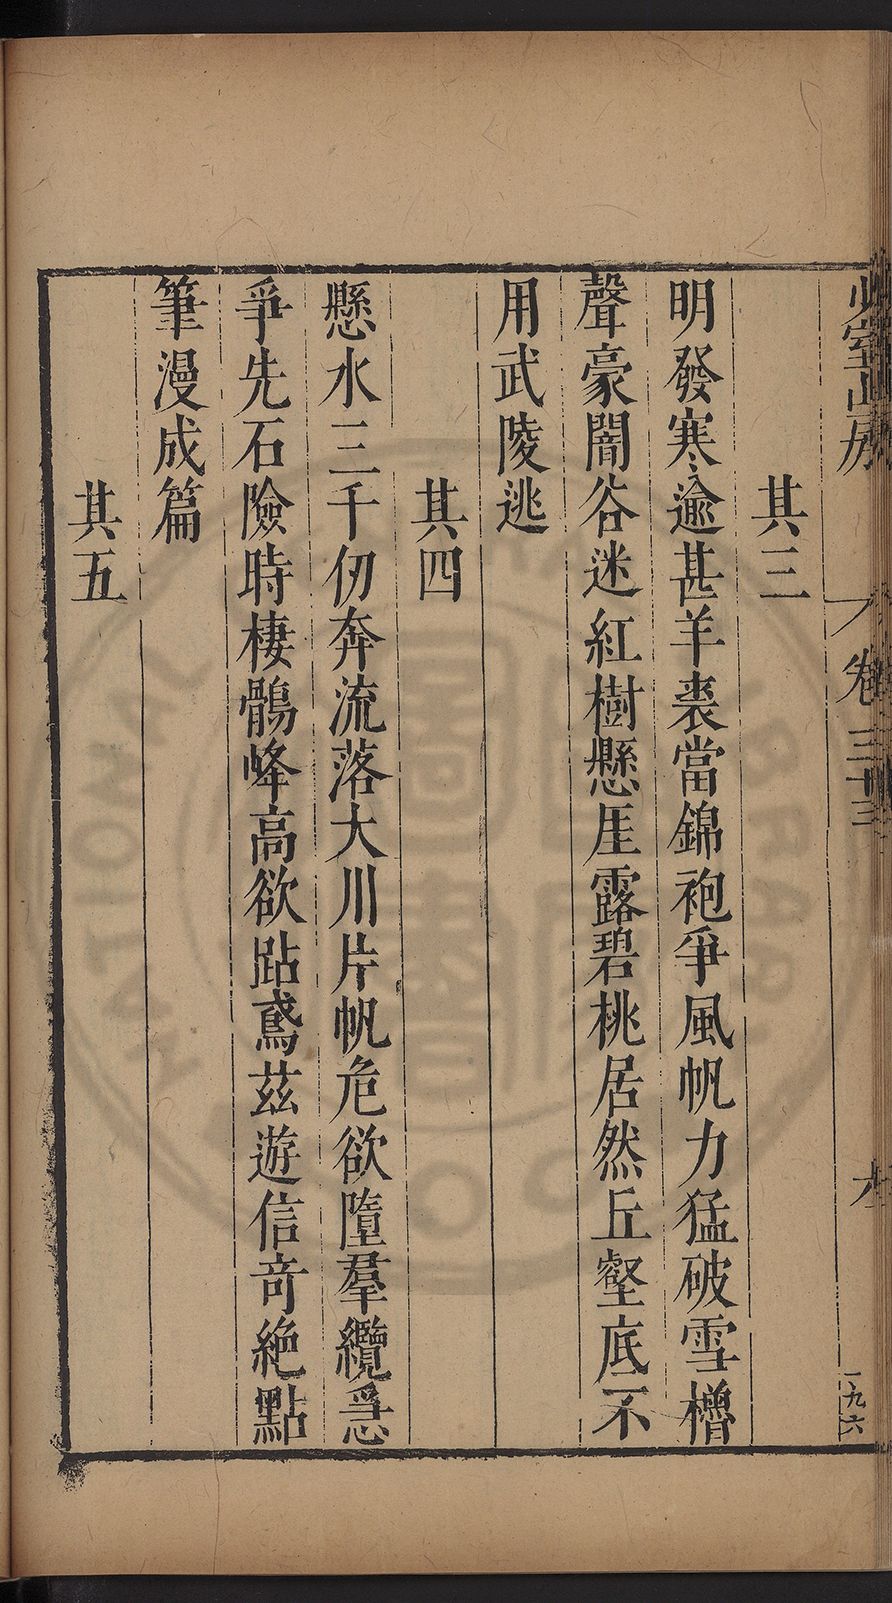 少室山房
卷三十三
一九六
其三
明發寒逾甚羊裘當錦袍爭風帆力猛破雪櫓
聲豪闇谷迷紅樹懸厓露碧桃居然丘壑底不
用武陵逃
其四
懸水三千仞奔流落大川片帆危欲墮羣纜急
爭先石險時棲鶻峰高欲跕鳶茲遊信奇絶點
筆漫成篇
其五